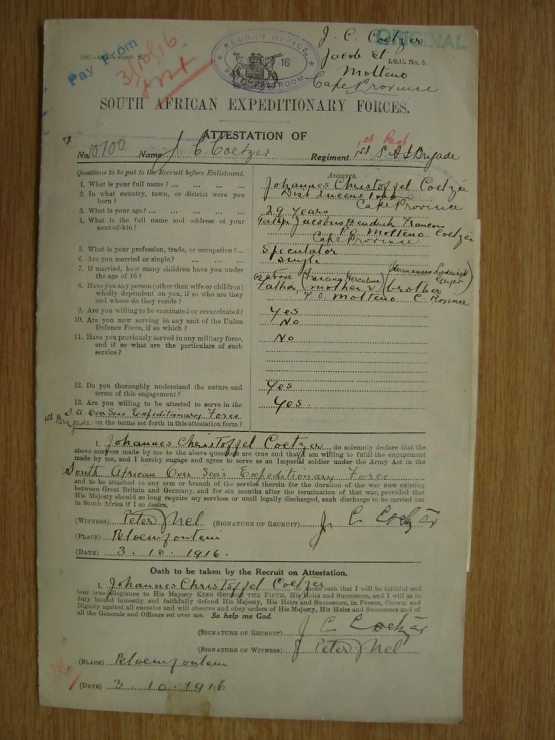 J. C. Coetzer
ORIGINAL
Jacob st
I.S.U. No. 5.
Molteno
Cape Province
Pay From
3/10/16
RECORD OFFICE
16
ROOM
SOUTH AFRICAN EXPEDITIONARY FORCES.
ATTESTATION OF
No. 10700 Name J. C. Coetzer Regiment 1st S.A.I Brigade
Questions to be put to the Recruit before Enlistment.
Answers.
1. What is your full name? ... ... ... ...
Johannes Christoffel Coetzer
2. In what country, town, or district were you born?
Dist Queenstown
Cape Province
3. What is your age? ... ... ... ...
29 Years
4. What is the full name and address of your next-of-kin?
Father Jacobus Hendrik Francois
P.O. Molteno Coetzer
Cape Province
5. What is your profession, trade, or occupation?...
Speculator
6. Are you married or single? ... ... ...
Single
7. If married, how many children have you under the age of 16?
8. Have you any person (other than wife or children) wholly dependent on you, if so who are they and where do they reside?
Father, mother & brother
P.O. Molteno C. Province
9. Are you willing to be vaccinated or revaccinated?
Yes
10. Are you now serving in any unit of the Union Defence Force, if so which?
No
11. Have you previously served in any military force, and if so what are the particulars of such service?
No
12. Do you thoroughly understand the nature and terms of this engagement?
Yes
13. Are you willing to be attested to serve in the
S.A. Over Seas Expeditionary Force
1st Brigade on the terms set forth in this attestation form?
Yes.
I, Johannes Christoffel Coetzer do solemnly declare that the
above answers made by me to the above questions are true and that I am willing to fulfil the engagement
made by me, and I hereby engage and agree to serve as an Imperial soldier under the Army Act in the
South African Over Sea's Expeditionary Force
and to be attached to any arm or branch of the service therein for the duration of the war now existing
between Great Britain and Germany, and for six months after the termination of that war, provided that
His Majesty should so long require my services or until legally discharged, such discharge to be carried out
in South Africa if I so desire.
(WITNESS) Peter Nel (SIGNATURE OF RECRUIT) J. C. Coetzer
(PLACE) Bloemfontein
(DATE) 3. 10. 1916.
Oath to be taken by the Recruit on Attestation.
I, Johannes Christoffel Coetzer do make oath that I will be faithful and
bear true allegiance to His Majesty KING GEORGE THE FIFTH, His Heirs and Successors, and I will as in
duty bound honestly and faithfully defend His Majesty, His Heirs and Successors, in Person, Crown, and
Dignity against all enemies and will observe and obey orders of His Majesty, His Heirs and Successors and of
all the Generals and Officers set over me. So help me God.
(SIGNATURE OF RECRUIT) J C Coetzer
(SIGNATURE OF WITNESS) Peter Nel
(PLACE) Bloemfontein
(DATE) 3 10 1916